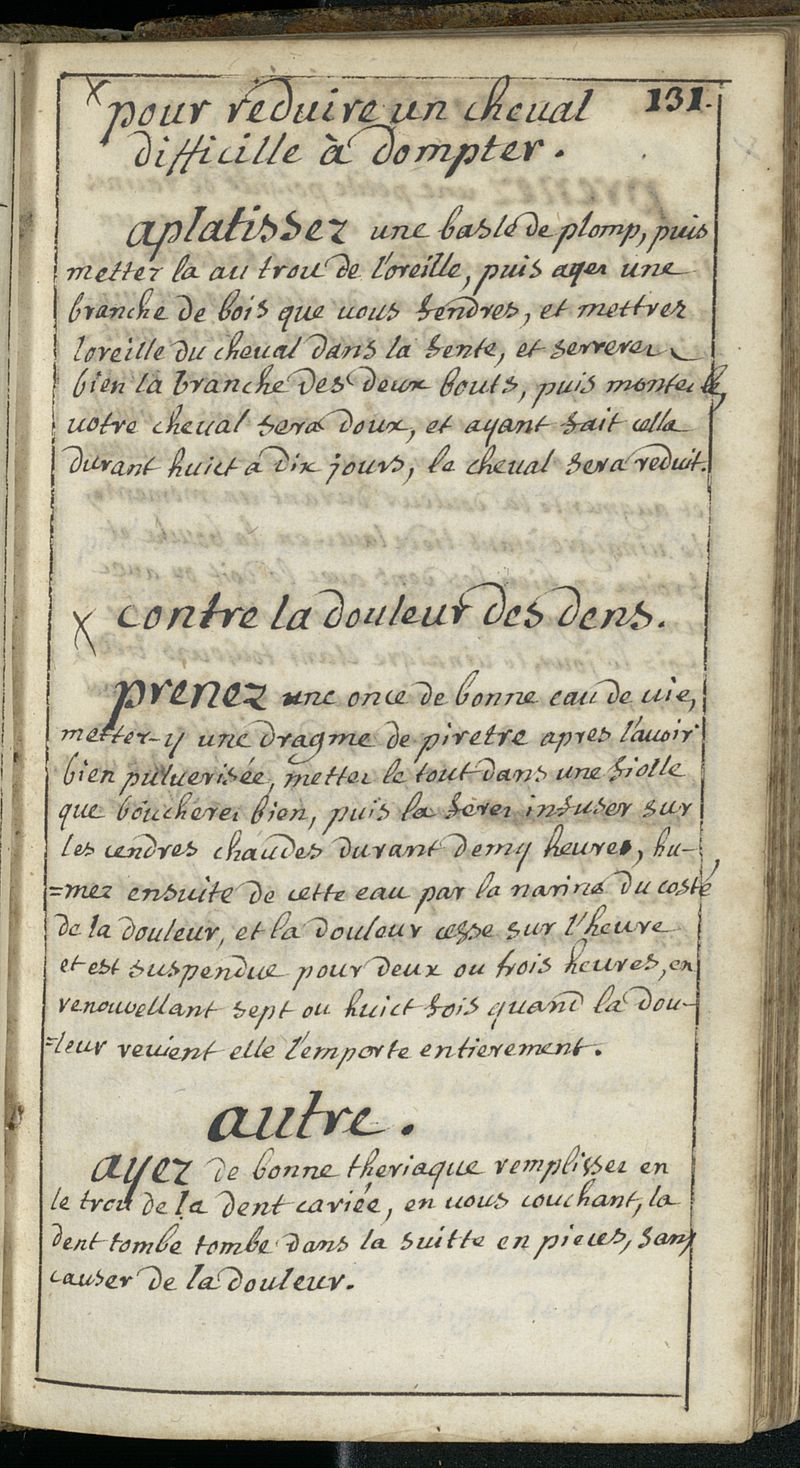 131.
pour reduire un cheual
difficille à dompter.
aplatissez une basle de plomp, puis
mettez la au trou de l'oreille, puis ayez une
branche de bois que uous fendres, et mettrez
loreille du cheual dans la fente, et serrerez
bien la branche des deux bouts, puis montez le,
uotre cheual sera doux, et ayant fait cella
durant huict à dix jours, le cheual sera reduit.
contre la douleur des dens.
prenez une once de bonne eau de uie,
mettez-y une dragme de piretre apres l'auoir
bien puluerisée, mettez le tout dans une fiolle
que boucherez bien, puis la ferez infuser sur
les cendres chaudes durant demy heure, hu-
=mez ensuite de cette eau par la narine du costé
de la douleur, et la douleur cesse sur l'heure
et est suspendue pour deux ou trois heures, en
renouvellant sept ou huict fois quand la dou-
=leur reuient elle l'emporte entierement.
autre.
ayez de bonne theriaque remplissez en
le trou de la dent cariée, en uous couchant, la
dent tombe tombe dans la suitte en pieces, sans
causer de la douleur.